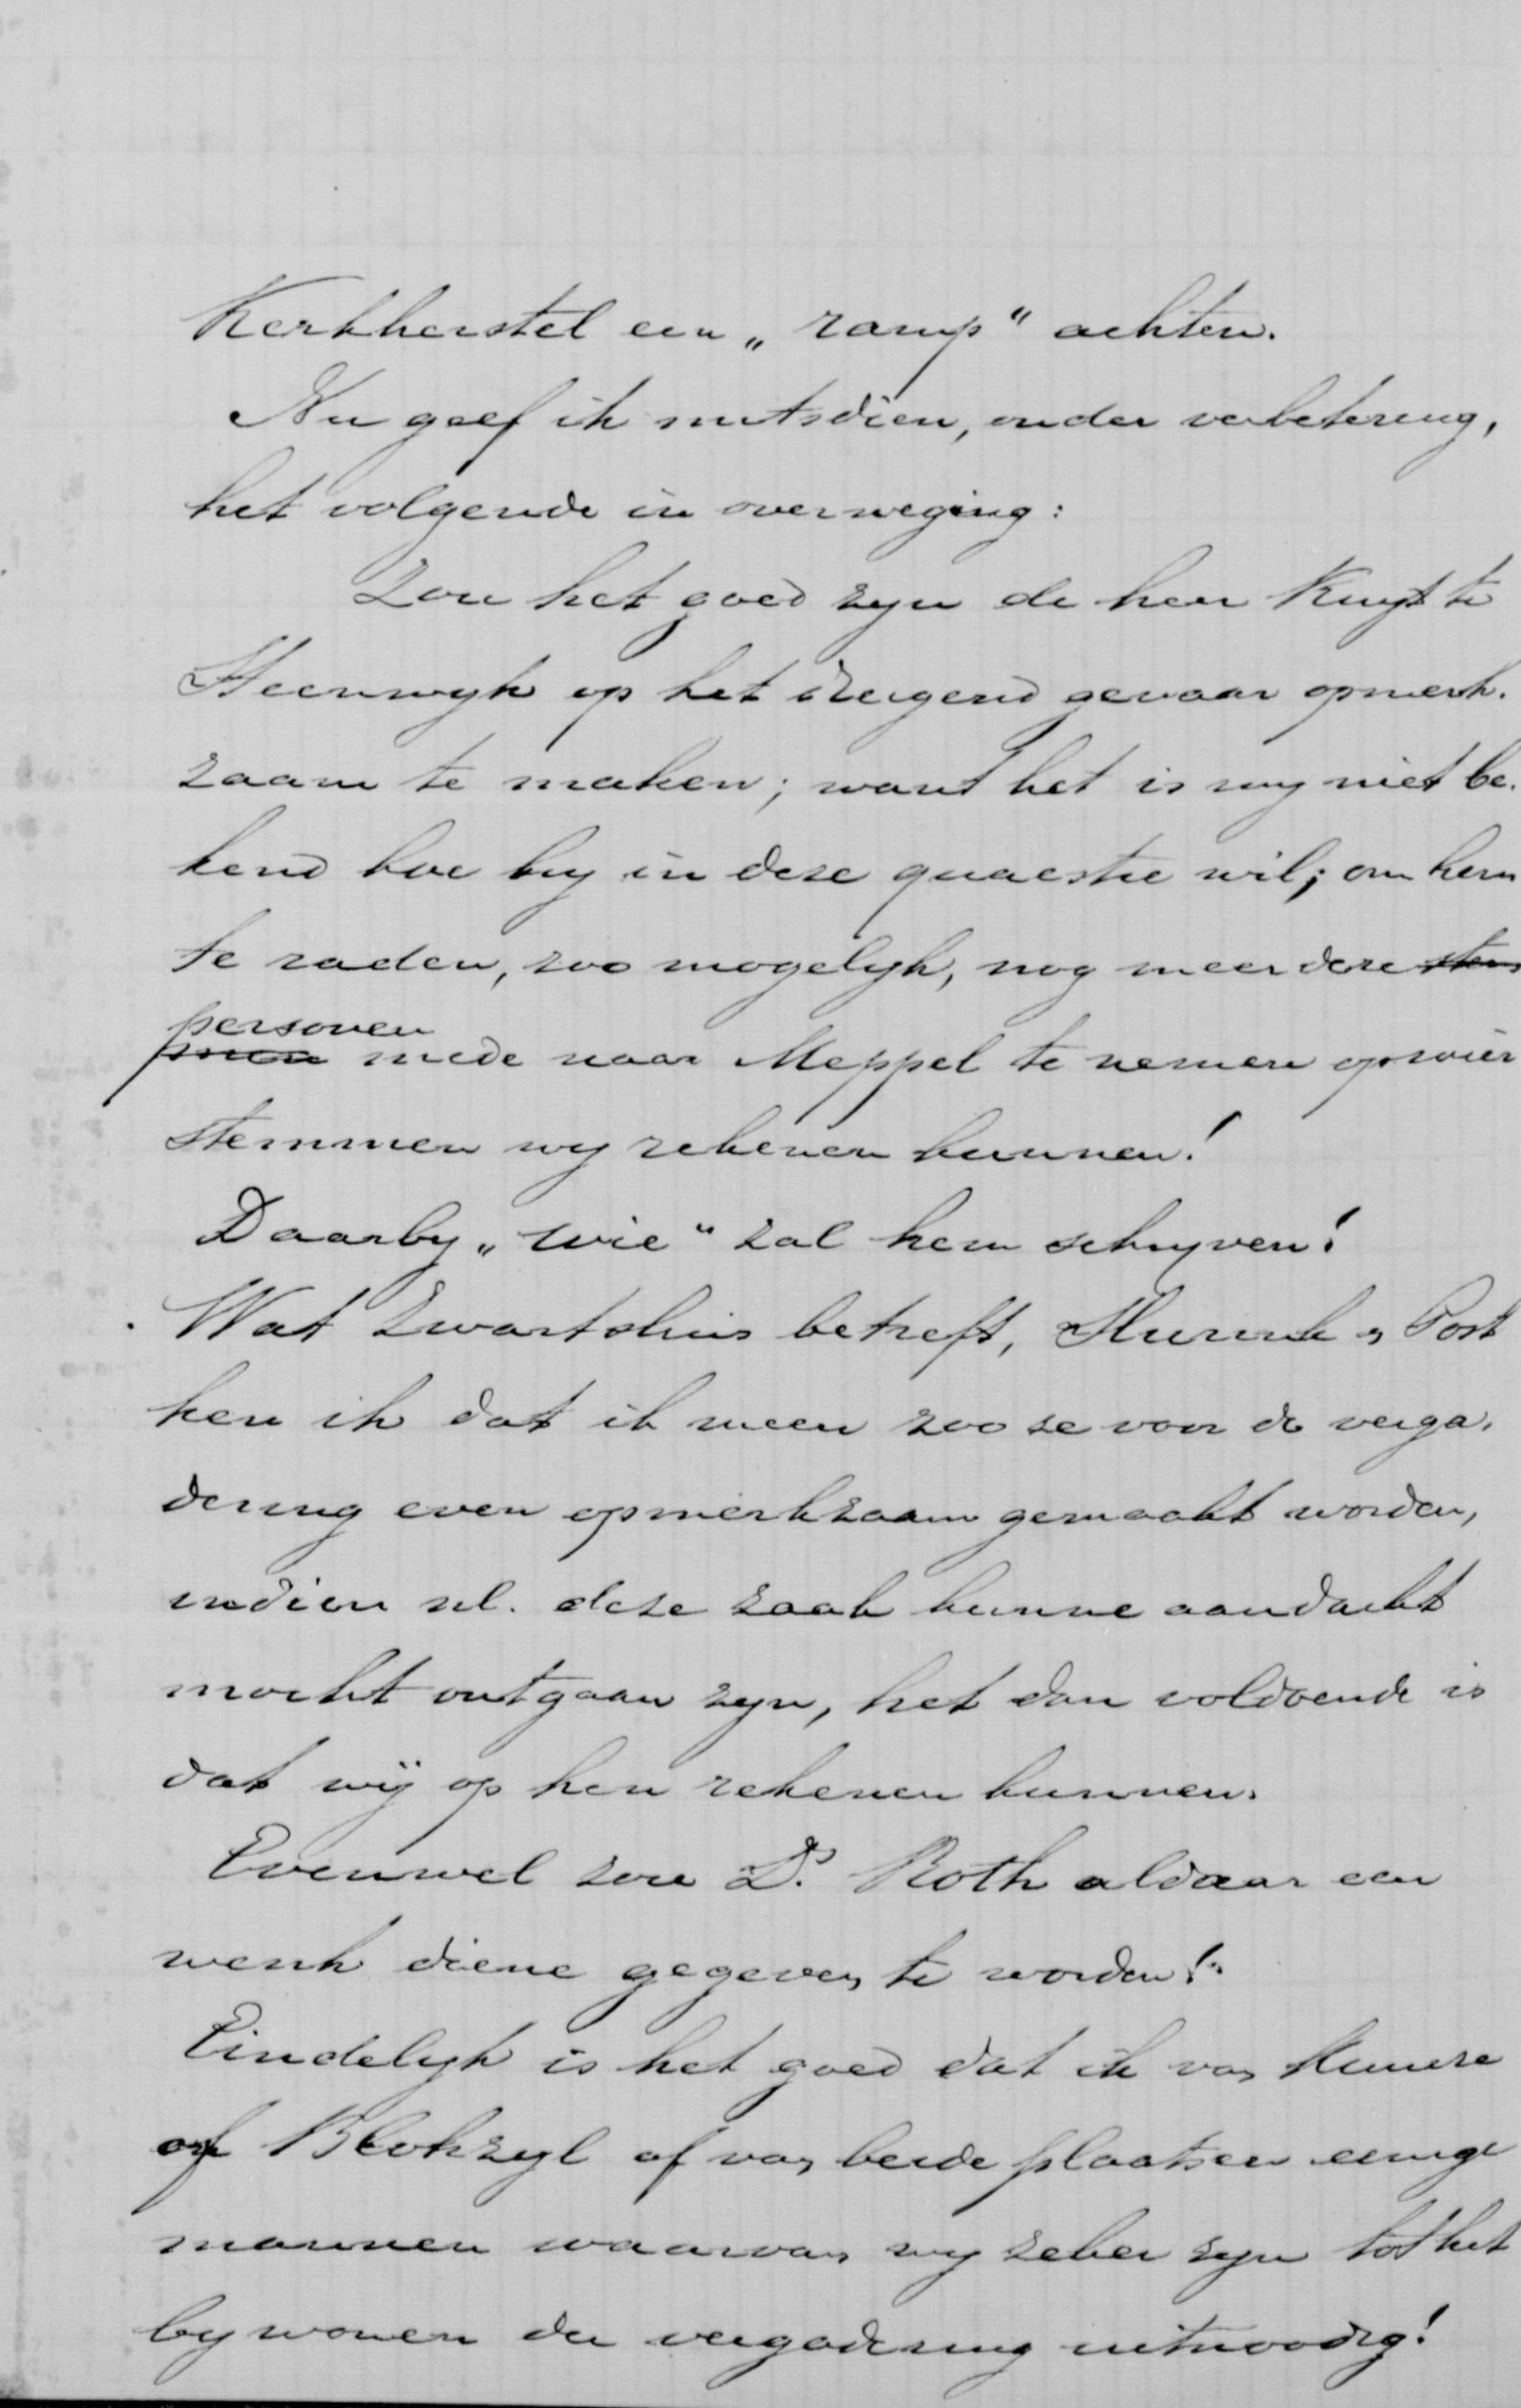 Kerkherstel een „ramp" achten.
Nu geef ik mitsdien, onder verbetering,
het volgende in overweging:
Zou het goed zyn de heer Kuyt te
Steenwyk op het dreigend gevaar opmerk-
zaam te maken; want het is my niet be-
kend hoe hy in deze quaestie wil; om hem
te raden, zoo mogelyk, nog meerdere
personen
mede naar Meppel te nemen op wier
stemmen wy rekenen kunnen!
Daarby „wie" zal hem schryven?
Wat Zwartsluis betreft, & Post
ken ik dat ik meen zoo ze voor de verga-
dering even opmerkzaam gemaakt worden,
indien nl. deze zaak hunne aandacht
mocht ontgaan zyn, het dan voldoende is
dat wij op hen rekenen kunnen.
Evenwel zou Ds. Roth aldaar een
wenk diene gegeven te worden!
Eindelyk is het goed dat ik van Kuinre
of Blokzyl of van beide plaatsen eenige
mannen waarvan wy zeker zyn tot het
bywonen der vergadering uitnoodig!